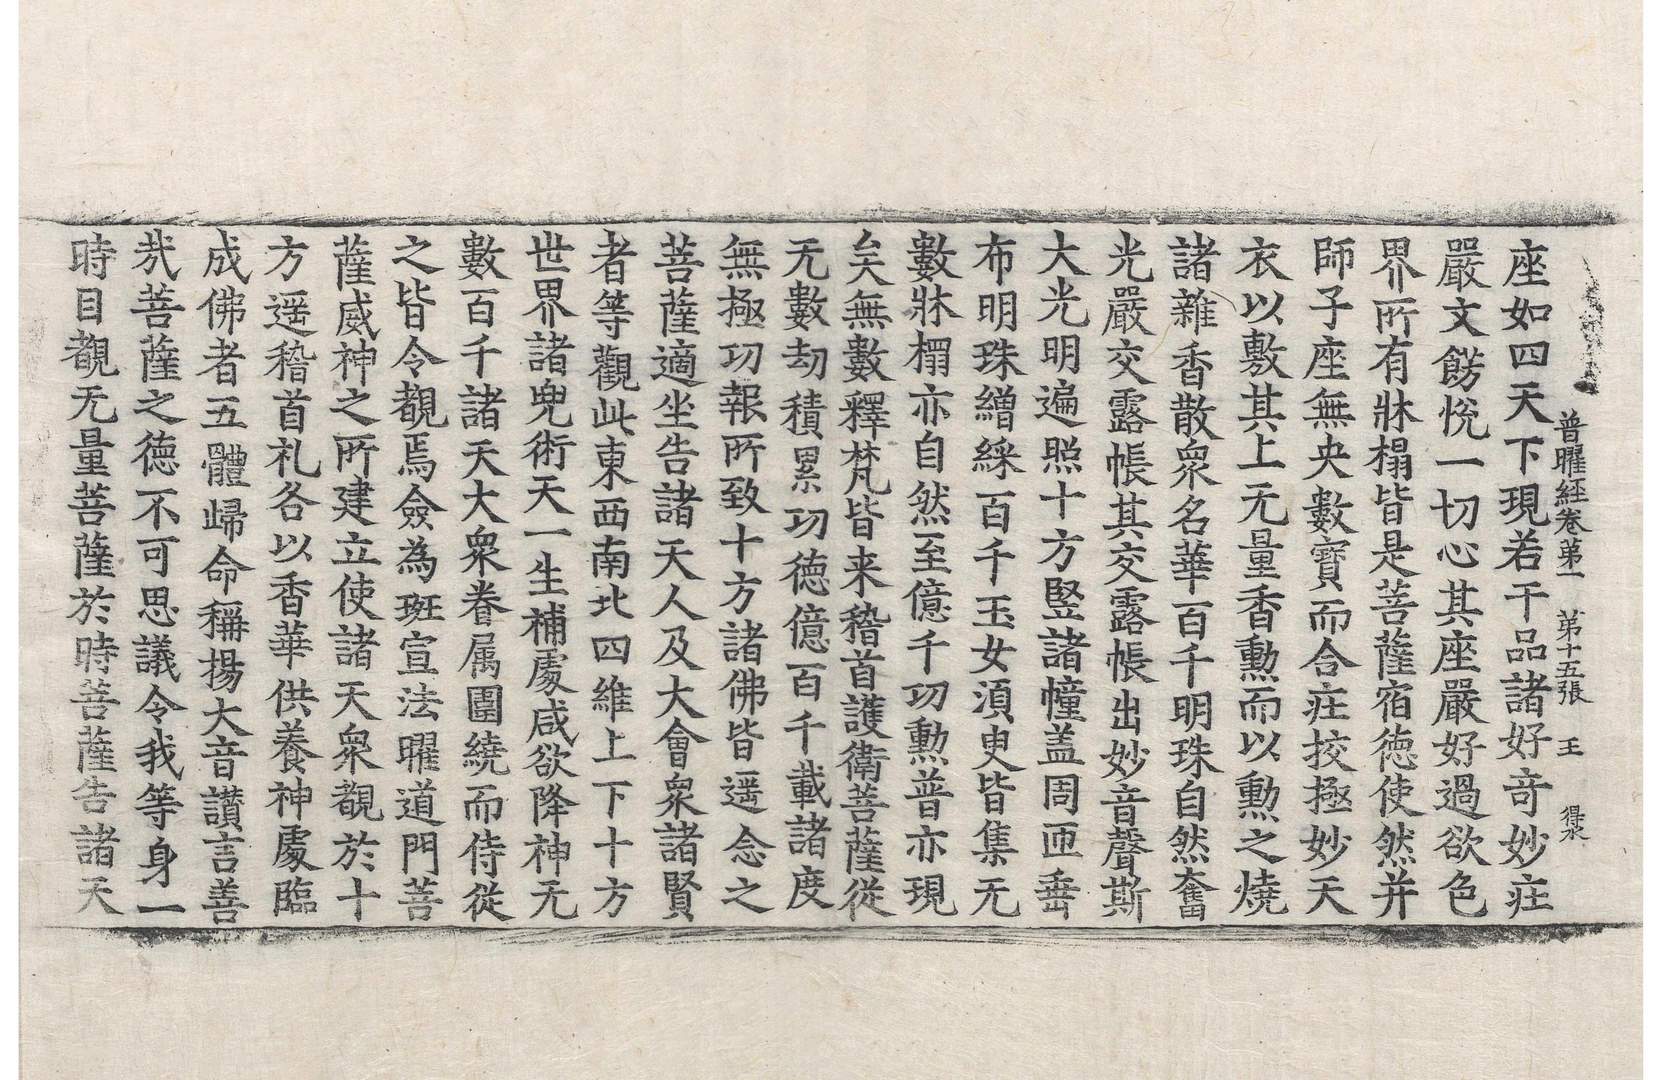 普曜経卷第一 第十五張 王 得永
座如四天下現若干品諸好竒妙疘
嚴文餝恱一切心其座嚴好過欲色
界所有牀榻皆是菩薩宿徳使然并
師子座無央數寶而合疘挍極妙天
衣以敷其上无量香勲而以勲之燒
諸雜香散衆名華百千明珠自然奮
光嚴交露帳其交露帳出妙音聲斯
大光明遍照十方竪諸幢盖周匝垂
布明珠繒綵百千玉女湏臾皆集无
數牀榻亦自然至億千功勲普亦現
矣無數釋梵皆来稽首護衛菩薩従
无數劫積累功徳億百千載諸度
無極功報所致十方諸佛皆遥念之
菩薩適坐告諸天人及大會衆諸賢
者等觀此東西南北四維上下十方
世界諸兜術天一生補處咸欲降神无
數百千諸天大衆眷属圍繞而侍従
之皆令覩焉僉為班宣法曜道門菩
薩威神之所建立使諸天衆覩於十
方遥稽首礼各以香華供養神處臨
成佛者五體歸命稱揚大音讃言善
㢤菩薩之徳不可思議令我等身一
時目覩无量菩薩於時菩薩告諸天